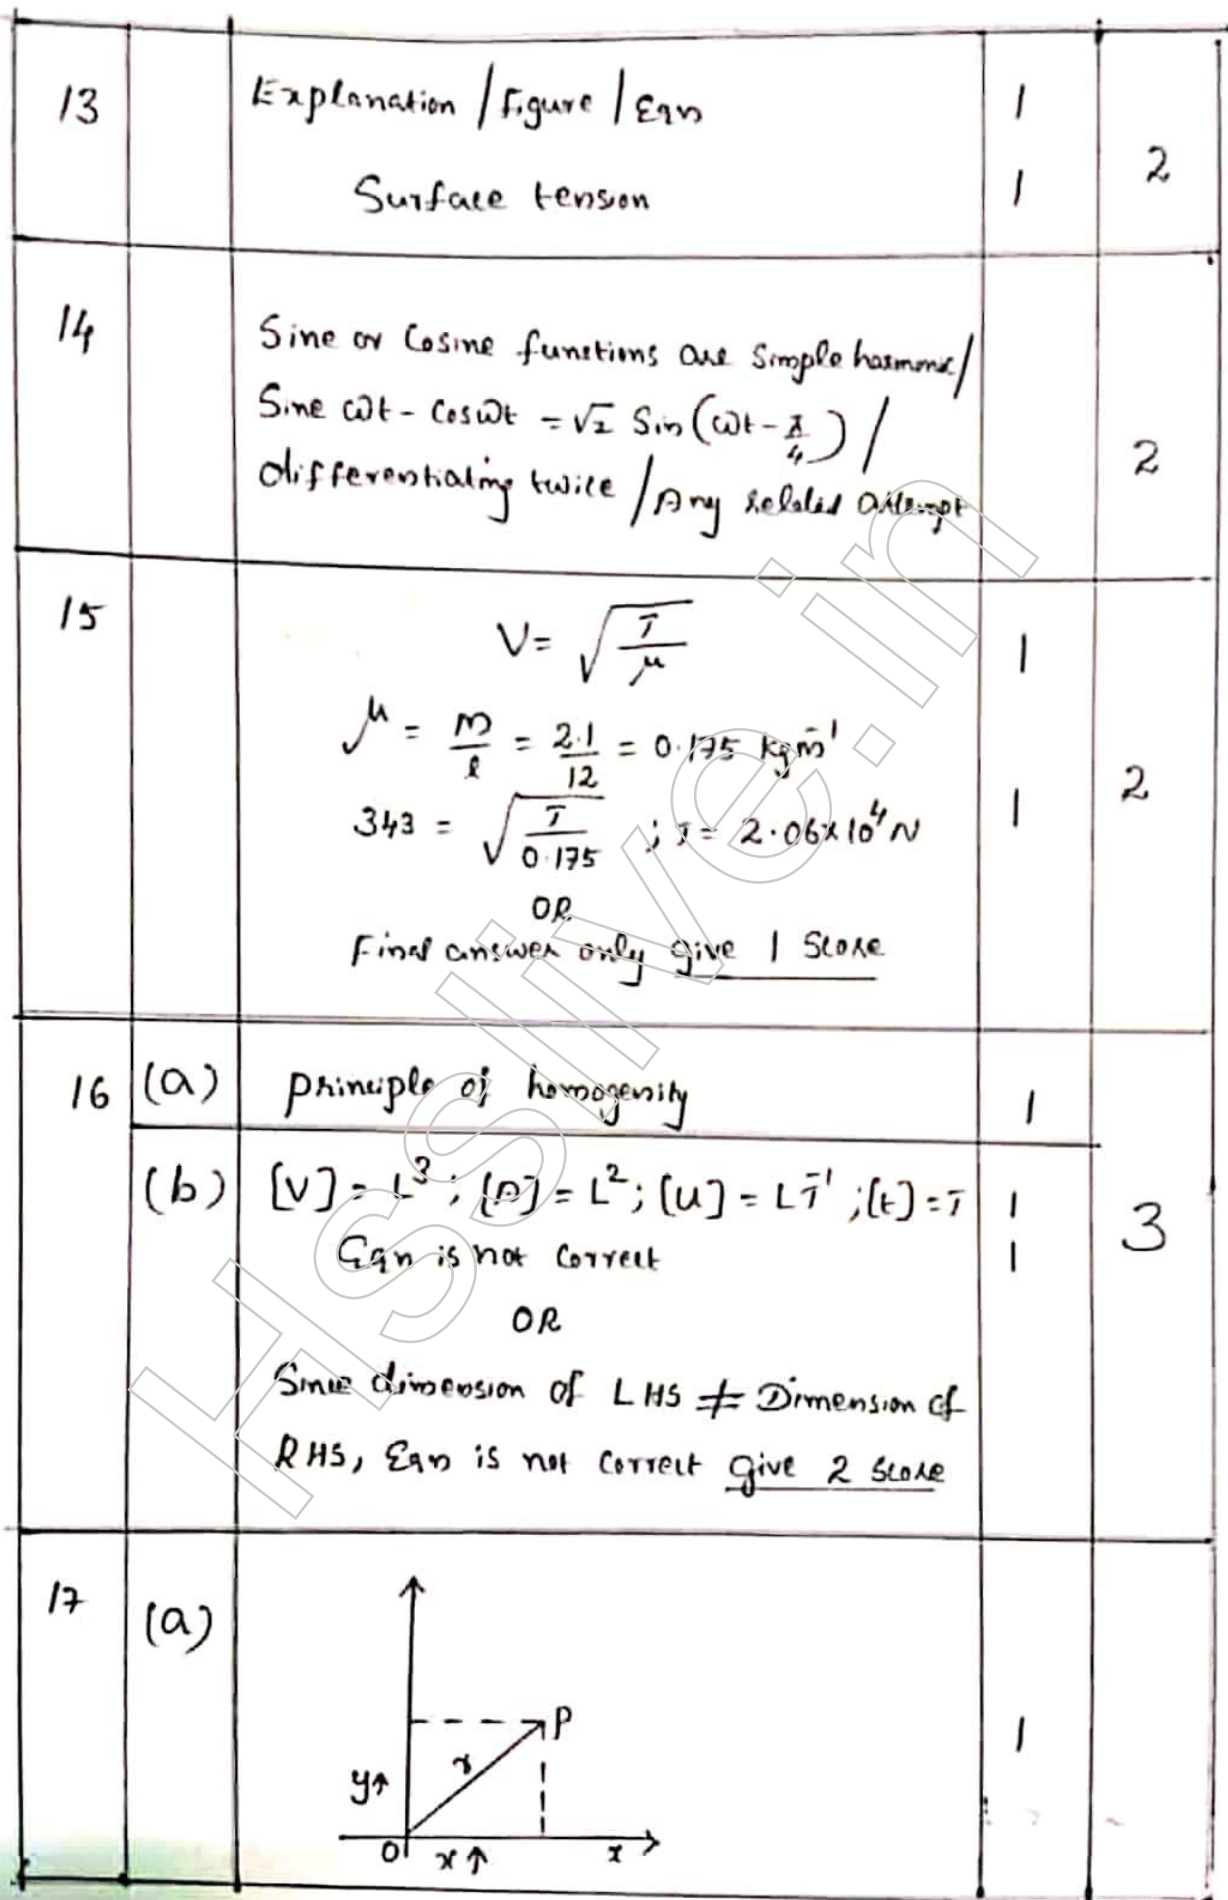 13 Explanation / Figure / Eqn 1
Surface tension 1 2
14 Sine or Cosine functions are Simple harmonic /
Sine ωt - Cosωt = √2 Sin(ωt - π/4) /
differentiating twice / Any related attempt 2
15 V = √(T/μ) 1
μ = m/l = 2.1/12 = 0.175 kgm⁻¹
343 = √(T/0.175) ; T = 2.06×10⁴ N 1 2
OR
Final answer only give 1 Score
16 (a) Principle of homogenity 1
(b) [V] = L³ ; [A] = L² ; [u] = LT⁻¹ ; [t] = T 1 3
Eqn is not Correct 1
OR
Since dimension of LHS ≠ Dimension of
RHS, Eqn is not Correct give 2 Score
17 (a)
P
r 1
y↑
O x↑ x
Hsslive.in